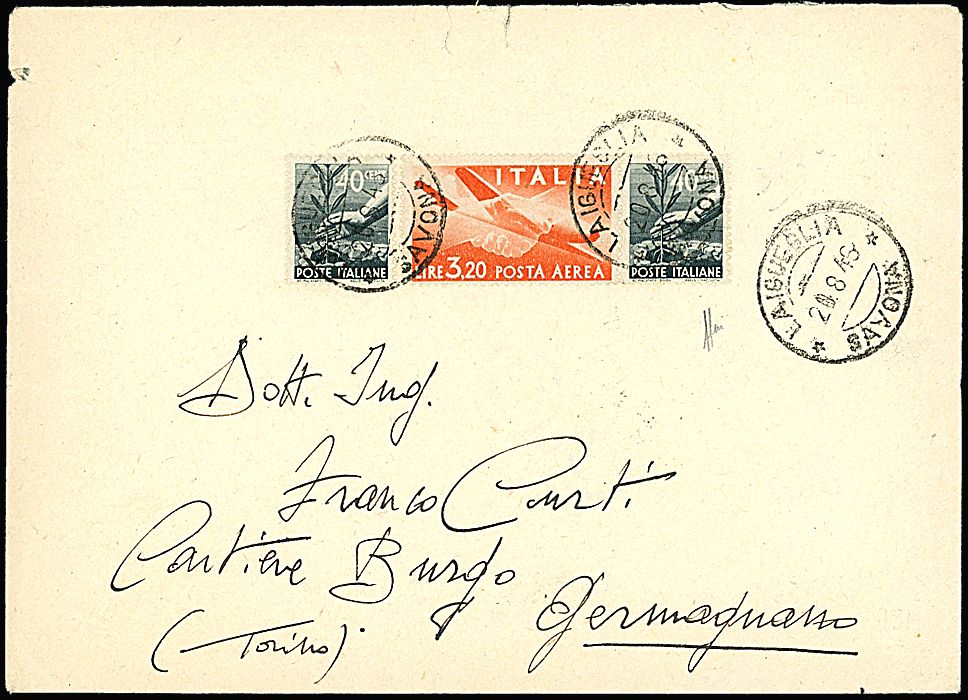 40 CENT.
POSTE ITALIANE
ITALIA
LIRE 3,20 POSTA AEREA
40
POSTE ITALIANE
LAIGUEGLIA * SAVONA *
LAIGUEGLIA * SAVONA *
20.8.46
Dott. Ing.
Franco Curti
Cartiere Burgo
Germagnano
(Torino)